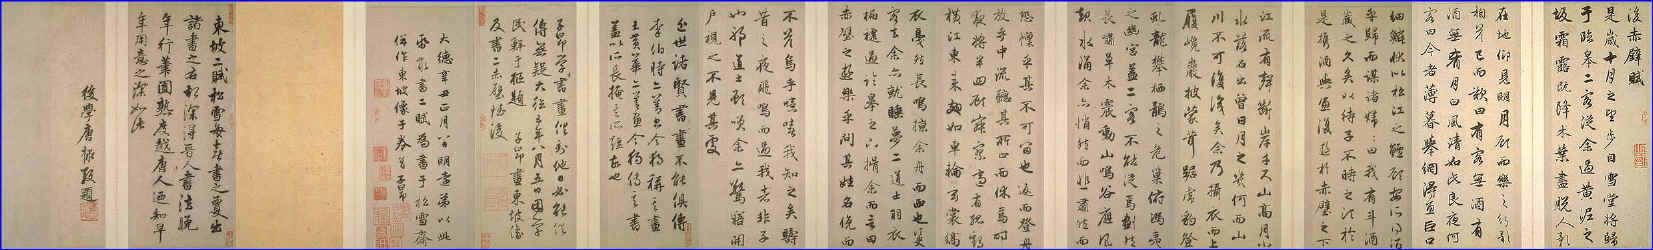 後赤壁賦
是歲十月之望步自雪堂將歸
于臨皋二客從余過黃泥之
坂霜露既降木葉盡脫人影
在地仰見明月顧而樂之行歌
相答已而歎曰有客無酒有
酒無肴月白風清如此良夜何
客曰今者薄暮舉網得魚巨口
細鱗狀似松江之鱸顧安所得酒
乎歸而謀諸婦婦曰我有斗酒
藏之久矣以待子不時之須於
是攜酒與魚復遊於赤壁之下
江流有聲斷岸千尺山高月小
水落石出曾日月之幾何而山
川不可復識矣余乃攝衣而上
履巉巖披蒙茸踞虎豹登
虬龍攀栖鶻之危巢俯馮夷
之幽宮蓋二客不能從焉劃然
長嘯草木震動山鳴谷應風
起水涌余亦悄然而悲肅然而
恐凜乎其不可留也返而登舟
放乎中流聽其所止而休焉時
夜將半四顧寂寥適有孤鶴
橫江東來翅如車輪玄裳縞
衣戛然長鳴掠余舟而西也須臾
客去余亦就睡夢二道士羽衣
翩躚過臨皋之下揖余而言曰
赤壁之遊樂乎問其姓名俛而
不答嗚乎噫嘻我知之矣疇
昔之夜飛鳴而過我者非子
也邪道士顧笑余亦驚寤開
戶視之不見其處
近世諸賢書畫不能俱傳
李伯時
蓋以所長掩其所短故也
子昂學書畫
傳無疑大德五年八月五日
民軒 題 子昂畫東坡像
及書二赤壁賦後
大德辛丑正月八日明遠弟以此
紙求書二賦為書于松雪齋
併作東坡像于卷首子昂
東坡二賦松雪每喜書之蓋出
諸書之右却深得晉人書法晚
年行筆圓熟度越唐人迺知早
年用意之深如此
後學唐棣敬題